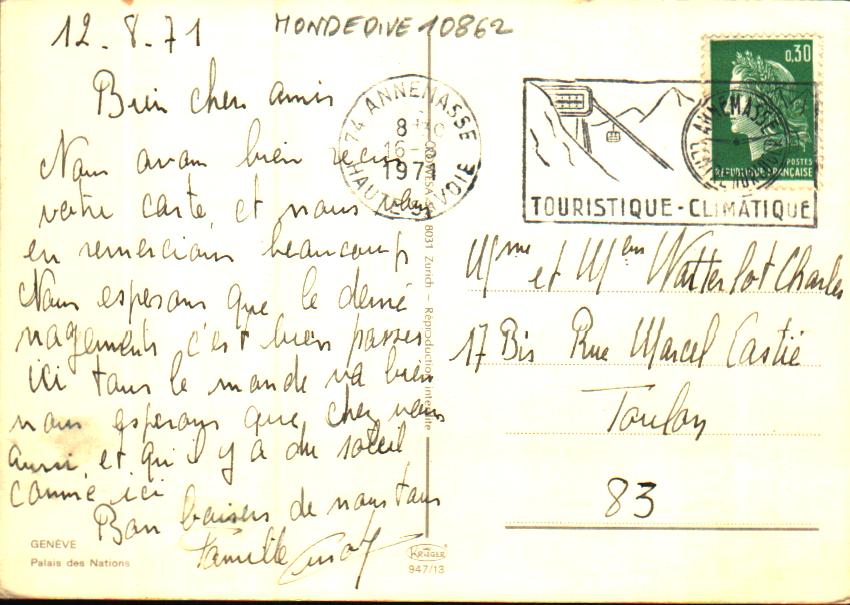 12.8.71
MONDEDIVE10862
Bien chers amis
Nous avons bien reçu
votre carte, et nous vous
en remercions beaucoup
Nous esperons que le demé
nagements c'est bien passes
ici tous le monde va bien
nous esperons que chez vous
aussi, et qu'il y a du soleil
comme ici
Bon baisers de nous tous
Famille
GENÈVE
Palais des Nations
74 ANNEMASSE
8
16-
1971
HAUTE-SAVOIE
8031 Zurich – Reproduction interdite
KRÜGER
947/13
0,30
POSTES
REPUBLIQUE FRANÇAISE
ANNEMASSE
TOURISTIQUE-CLIMATIQUE
Mme et Watterlot Charles
17 Bis Rue Marcel Castié
Toulon
83